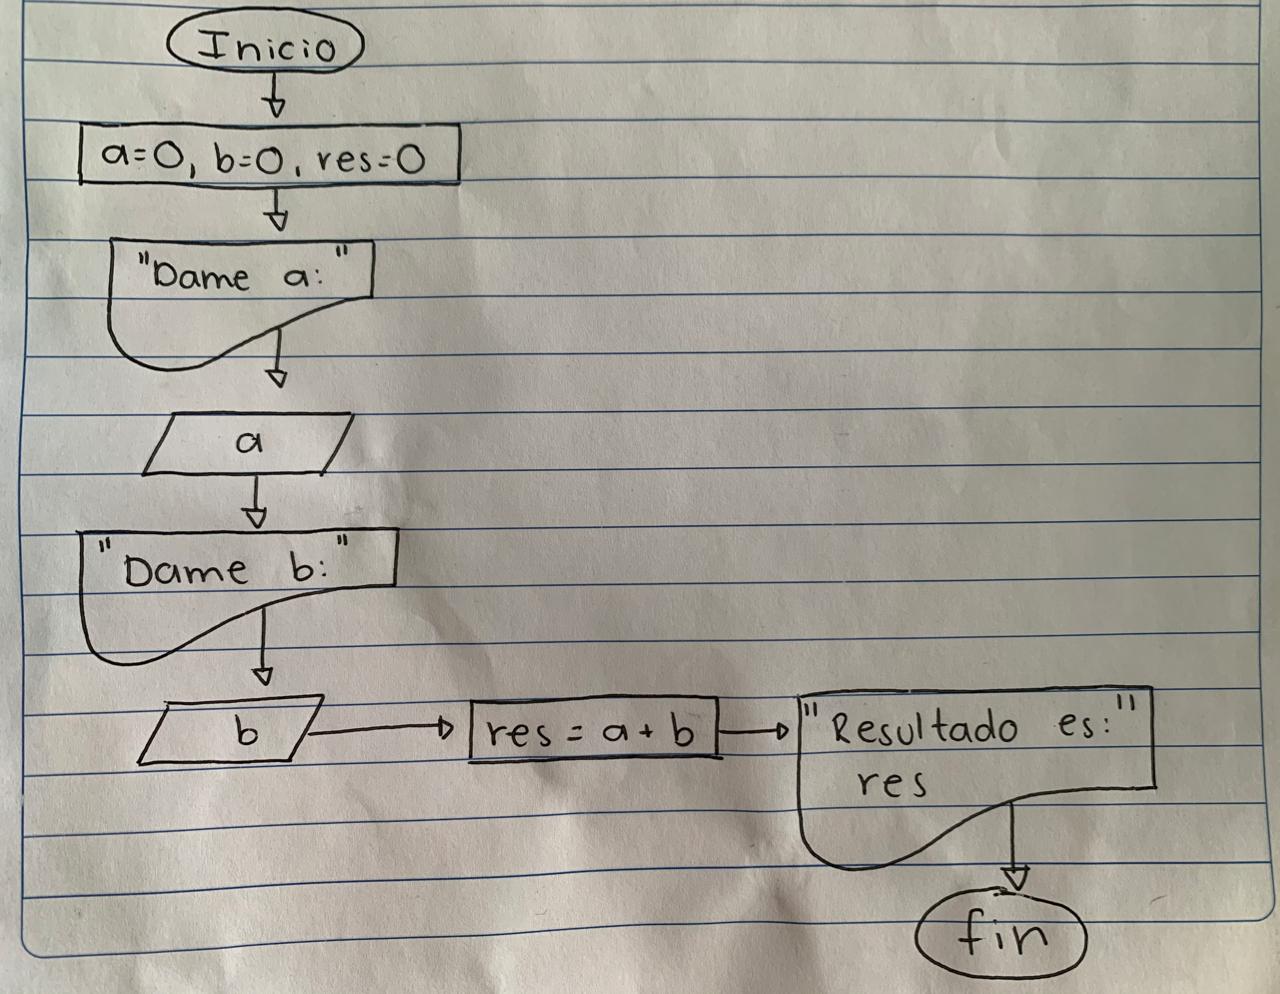 Inicio
a=0, b=0, res=0
"Dame a:"
a
"Dame b:"
b
res = a + b
"Resultado es:"
res
fin